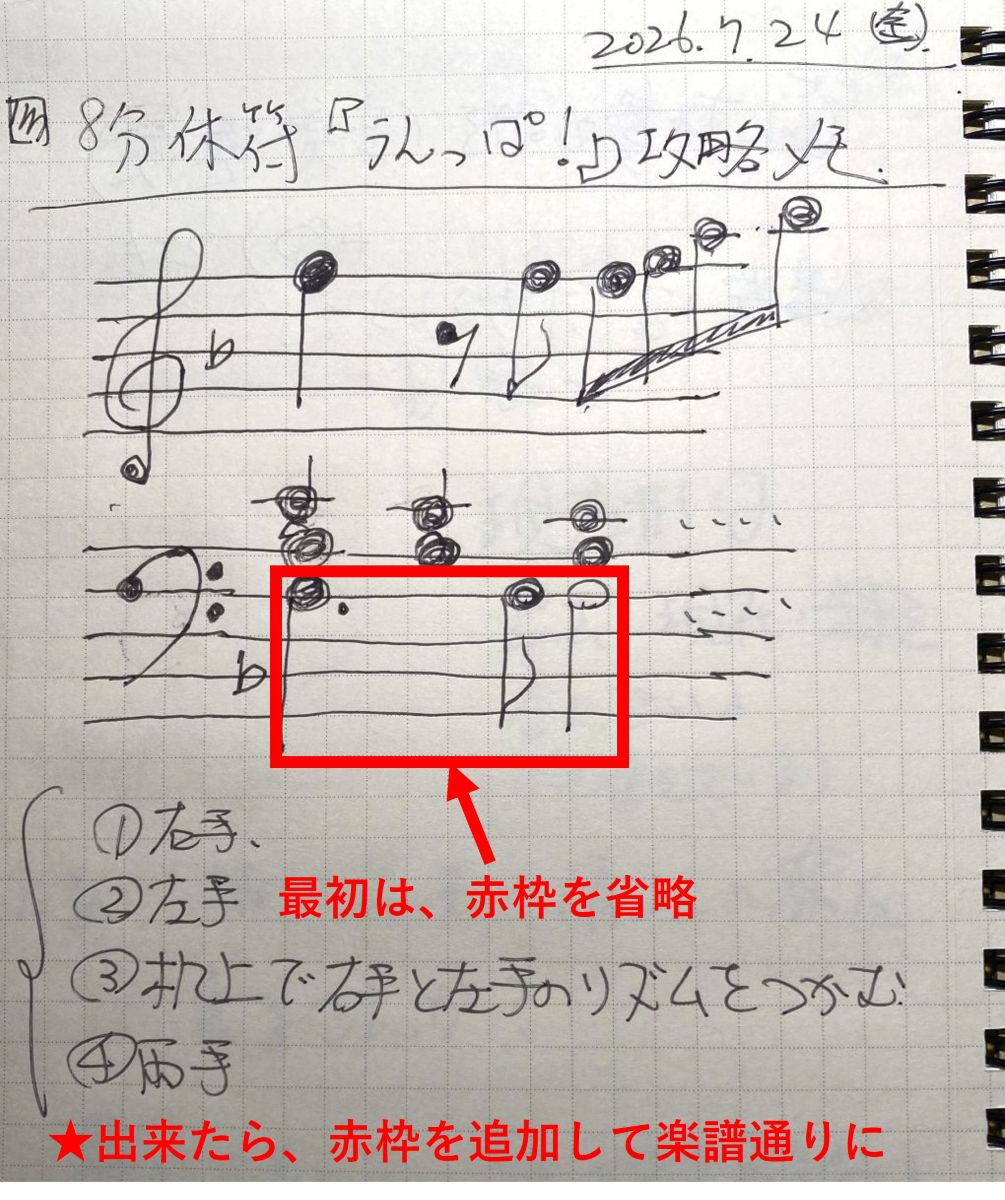 2026.7.24 (金).
8分休符『うんっぱ!♪』攻略メモ.
①右手.
②左手
最初は、赤枠を省略
③机上で右手と左手のリズムをつかむ.
④両手
★出来たら、赤枠を追加して楽譜通りに